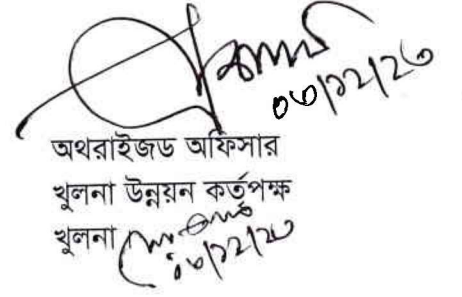 ০৩/১২/২৩
অথরাইজড অফিসার
খুলনা উন্নয়ন কর্তৃপক্ষ
খুলনা
০৩/১২/২৩